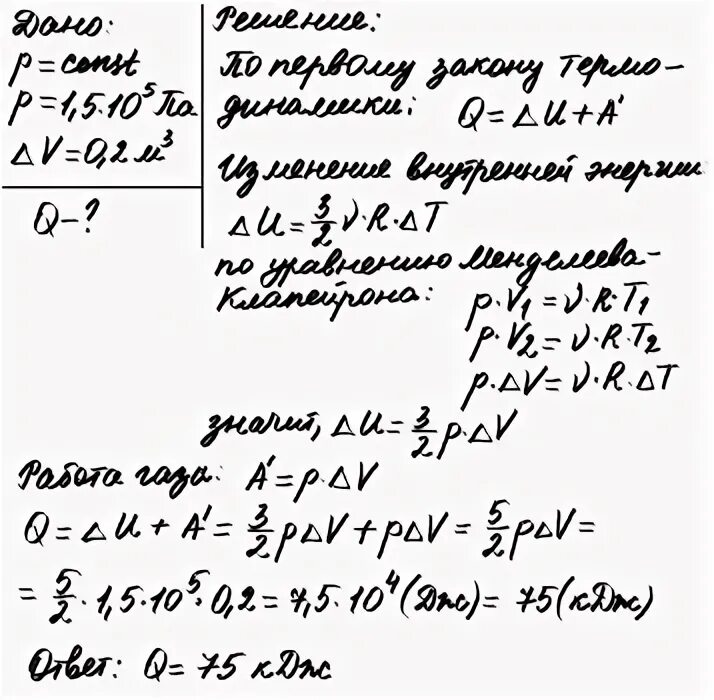 Дано:
p = const
p = 1,5·10⁵ Па
ΔV = 0,2 м³
Q – ?
Решение:
По первому закону термо-
динамики: Q = ΔU + A'
Изменение внутренней энергии
ΔU = 3/2 ν·R·ΔT
по уравнению Менделеева-
Клапейрона: p·V₁ = ν·R·T₁
p·V₂ = ν·R·T₂
p·ΔV = ν·R·ΔT
значит, ΔU = 3/2 p·ΔV
Работа газа: A' = p·ΔV
Q = ΔU + A' = 3/2 pΔV + pΔV = 5/2 pΔV =
= 5/2 · 1,5·10⁵·0,2 = 7,5·10⁴ (Дж) = 75 (кДж)
Ответ: Q = 75 кДж